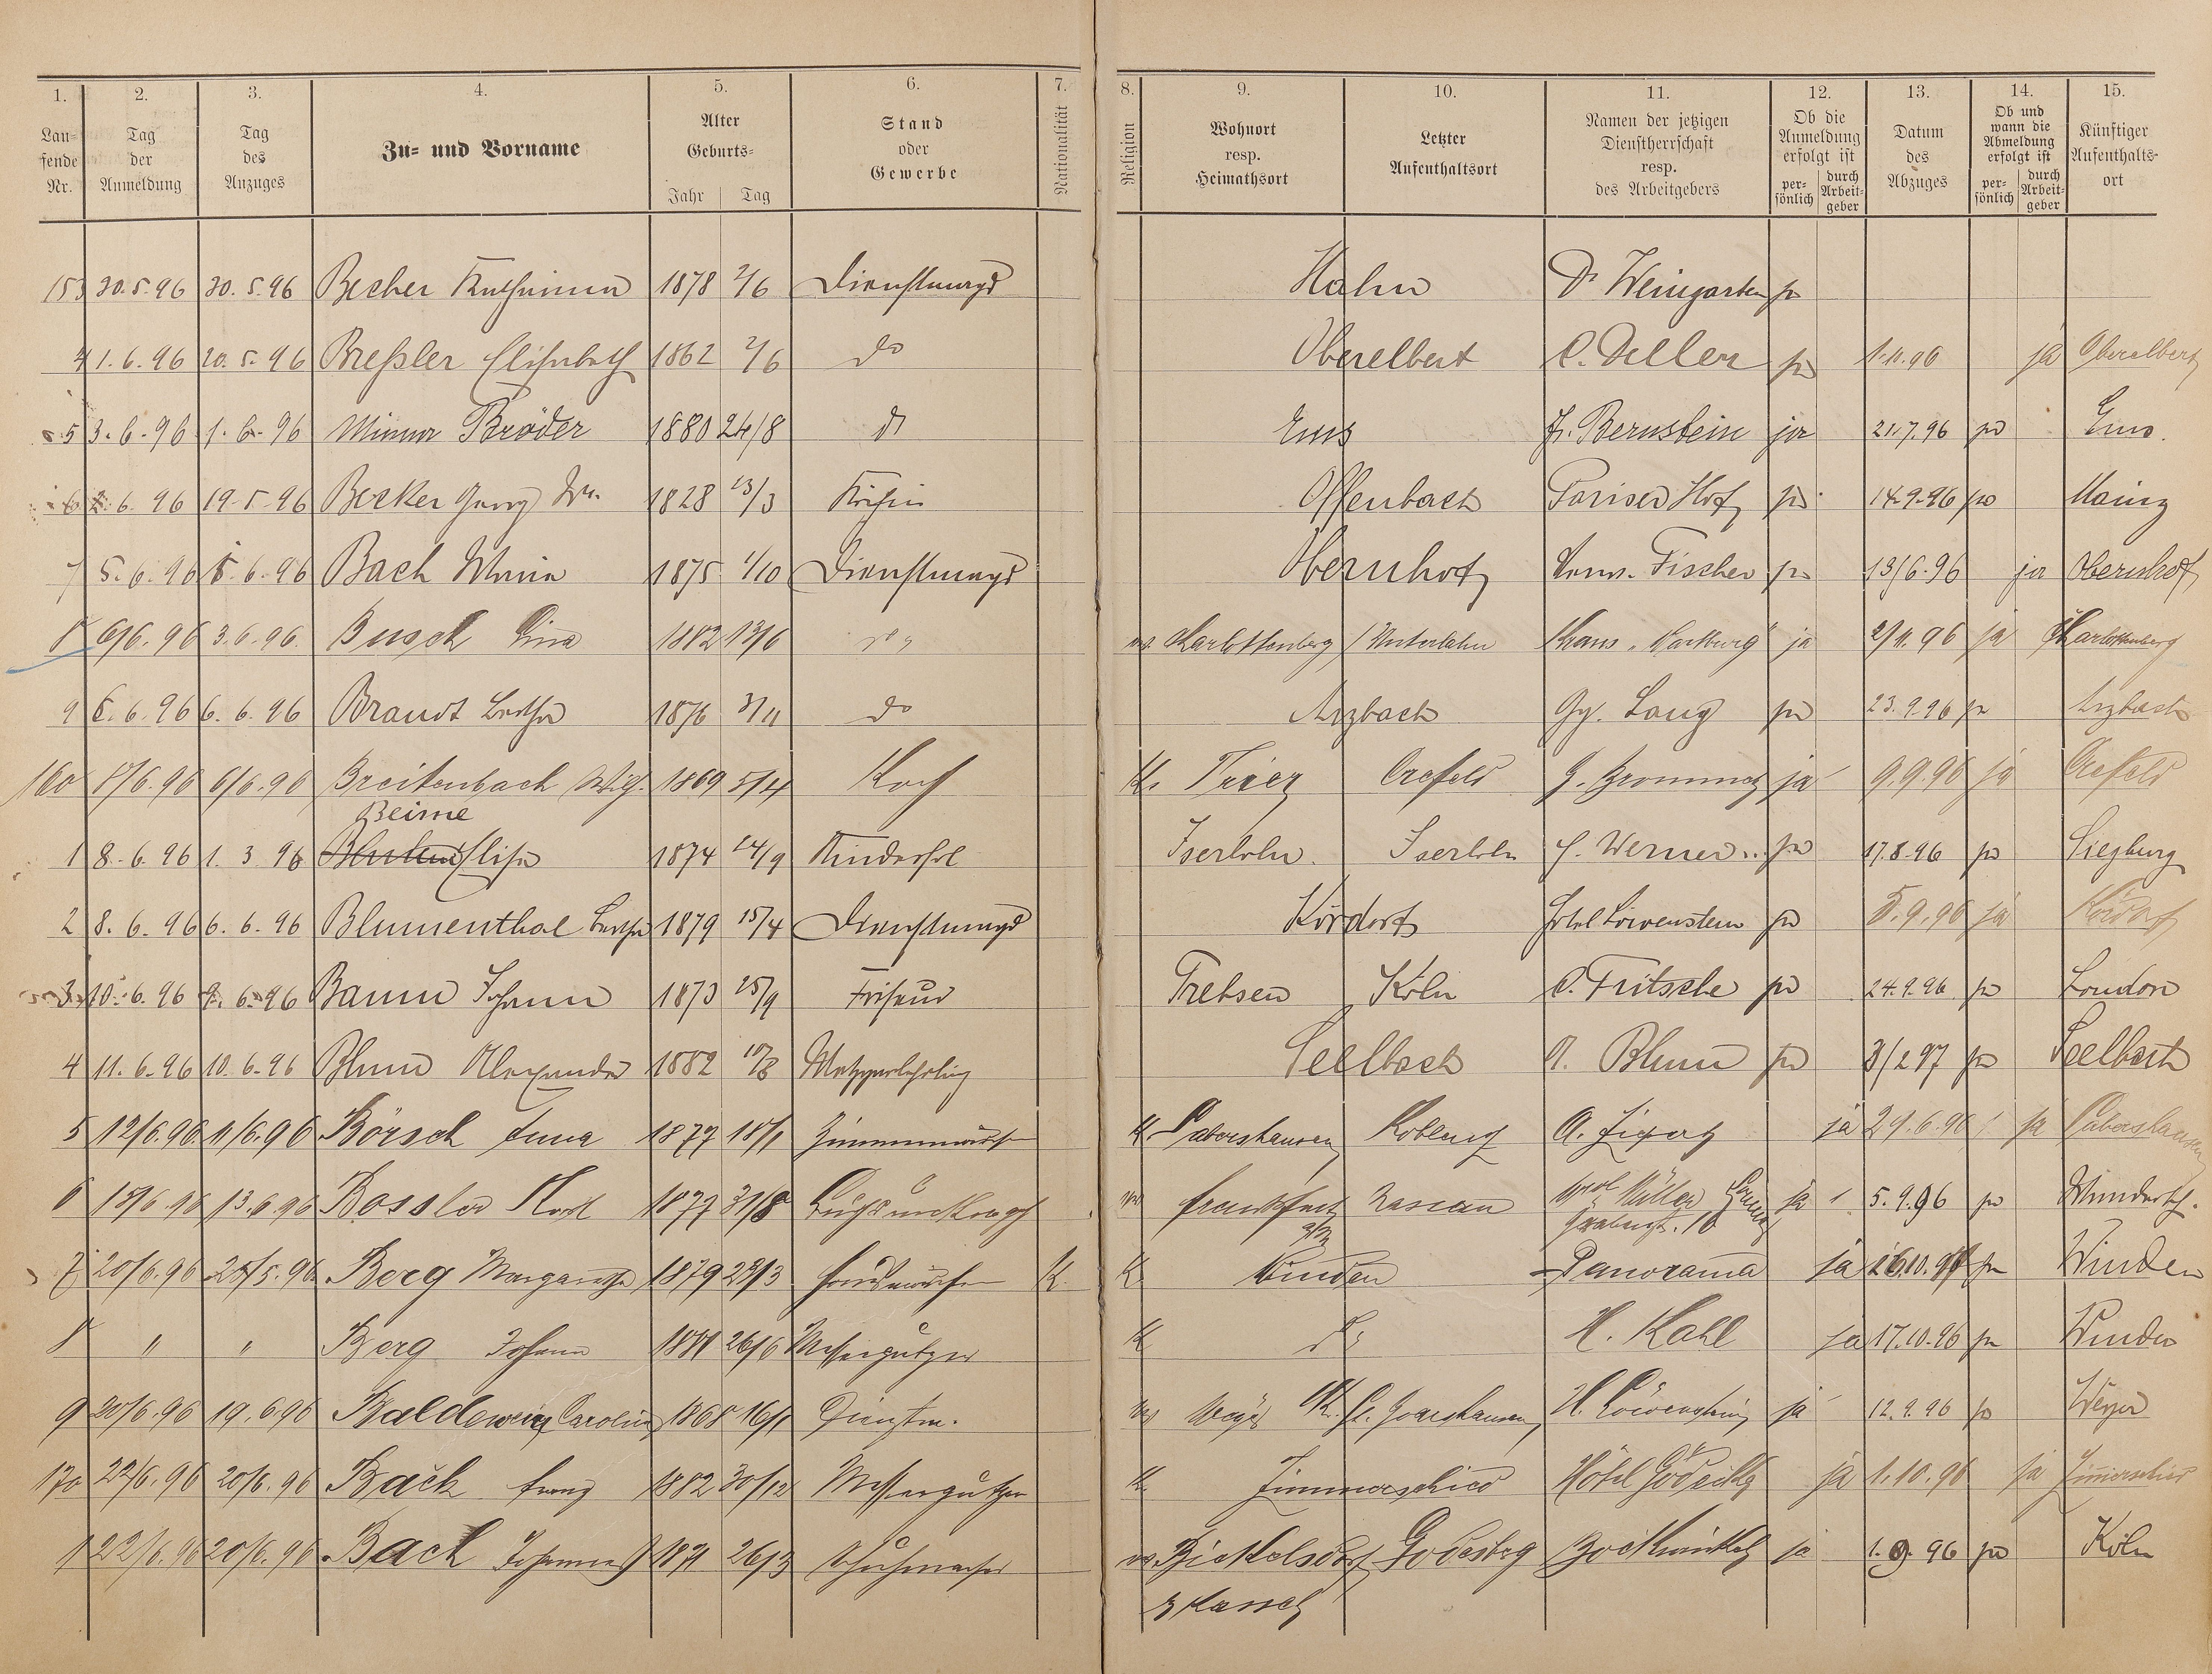 1. 2. 3. 4. 5. 6. 7. 8. 9. 10. 11. 12. 13. 14. 15.
Laufende Nr. Tag der Anmeldung Tag des Anzuges Zu- und Vorname Alter Geburts- Jahr Tag Stand oder Gewerbe Nationalität Religion Wohnort resp. Heimathsort Letzter Aufenthaltsort Namen der jetzigen Dienstherrschaft resp. des Arbeitgebers Ob die Anmeldung erfolgt ist persönlich durch Arbeitgeber Datum des Abzuges Ob und wann die Abmeldung erfolgt ist persönlich durch Arbeitgeber Künftiger Aufenthaltsort
153 30.5.96 30.5.96 Becher Katharina 1878 2/6 Dienstmagd Hahn Dr Weingarten
4 1.6.96 20.5.96 Breßler Elisabeth 1862 2/6 do Oberelbert C. Deller 1.11.96 ja Oberelbert
5 3.6.96 1.6.96 Minna Bröder 1880 24/8 do Ems Fr. Bernstein ja 21.7.96 Ems.
6 2.6.96 19.5.96 Becker Georg Ww. 1828 13/3 Köchin Offenbach Pariser Hof 14.9.96 Mainz
7 5.6.96 5.6.96 Bach Maria 1875 1/10 Dienstmagd Obernhof Fischer 13/6.96 ja Obernhof
8 6/6.96 3.6.96. Busch Lina 1882 13/6 Charlottenberg / Unterlahn Haus "Wartburg" ja 2/11.96 ja Charlottenberg
9 6.6.96 6.6.96 Brandt Bertha 1876 3/11 do Arzbach Gg. Lang 23.9.96 Arzbach
160 8/6.96 6/6.96 Breitenbach Wilh. 1869 5/4 Koch K. Trier Crefeld ja 9.9.96 ja Crefeld
Beime
1 8.6.96 1.3.96 Elise 1874 24/9 Kinderfrl Iserlohn. Iserlohn C. Werner 17.8.96 Siegburg
2 8.6.96 6.6.96 Blumenthal Bertha 1879 15/4 Dienstmagd Kördorf Hotel Löwenstein 5.9.96 ja Kördorf
3 10.6.96 9.6.96 Baum Johann 1873 25/9 Friseur Trebsen Köln C. Fritsche 24.9.96 London
4 11.6.96 10.6.96 Blum Alexander 1882 10/8 Metzgerlehrling Seelbach A. Blum 3/2 97 Seelbach
5 12/6.96 11/6.96 Börsch Anna 1877 18/1 Zimmermädch K Coblenz A. ja 29.6.96 ja
6 15/6.96 13.6.96 Bossler Karl 1877 31/8 Frankfurt a/M Nassau Müller Grabenst. 10 ja 5.9.96
7 20/6.96 25/5.96 Berg Margaretha 1879 23/3 Hausmädchen K. K. Winden Panorama ja 16.10.96 Winden
8 " " Berg Johann 1881 26/6 Messerputzer K do H. Kahl ja 17.10.96 Winden
9 20/6.96 19.6.96 Baldewein Carolina 1868 16/1 Dienstm. Weyer Kr. St. Goarshausen H. Löwenstein ja 12.9.96 Weyer
170 22/6.96 20/6.96 Back Franz 1882 30/12 Messerputzer K. Zimmerschied Hôtel Gödecke ja 1.10.96 ja Zimmerschied
1 22/6.96 20/6.96 Back Johannes 1871 26/3 Schuhmacher Godesberg ja 1.9.96 Köln
Kassel